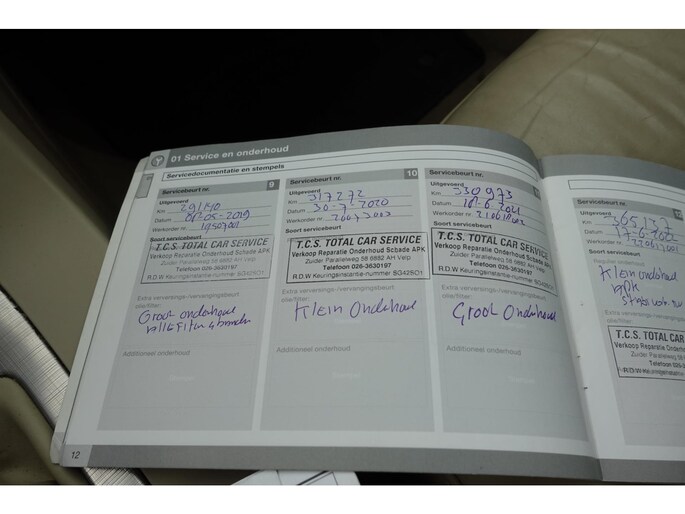 01 Service en onderhoud
Servicedocumentatie en stempels
Servicebeurt nr. 9
Uitgevoerd
Km 291140
Datum 01-05-2019
Werkorder nr.
Soort servicebeurt
T.C.S. TOTAL CAR SERVICE
Verkoop Reparatie Onderhoud Schade APK
Zuider Parallelweg 58 6882 AH Velp
Telefoon 026-3630197
R.D.W Keuringsinstantie-nummer SG42501
Extra verversings-/vervangingsbeurt
olie/filter:
Groot onderhoud
Additioneel onderhoud
Servicebeurt nr. 10
Uitgevoerd
Km 317272
Datum 30-7-2020
Werkorder nr. 20073003
Soort servicebeurt
T.C.S. TOTAL CAR SERVICE
Verkoop Reparatie Onderhoud Schade APK
Zuider Parallelweg 58 6882 AH Velp
Telefoon 026-3630197
R.D.W Keuringsinstantie-nummer SG42501
Extra verversings-/vervangingsbeurt
olie/filter:
Klein Onderhoud
Additioneel onderhoud
Servicebeurt nr.
Uitgevoerd
Km 330973
Datum
Werkorder nr.
Soort servicebeurt
T.C.S. TOTAL CAR SERVICE
Verkoop Reparatie Onderhoud Schade APK
Zuider Parallelweg 58 6882 AH Velp
Telefoon 026-3630197
R.D.W Keuringsinstantie-nummer SG42501
Extra verversings-/vervangingsbeurt
olie/filter:
Groot Onderhoud
Additioneel onderhoud
365137
17-6-2022
Klein onderhoud
apk
T.C.S. TOTAL CAR
Verkoop Reparatie Onderh
Zuider Parallelweg 58
Telefoon 026
R.D.W Keuringsinstantie
12